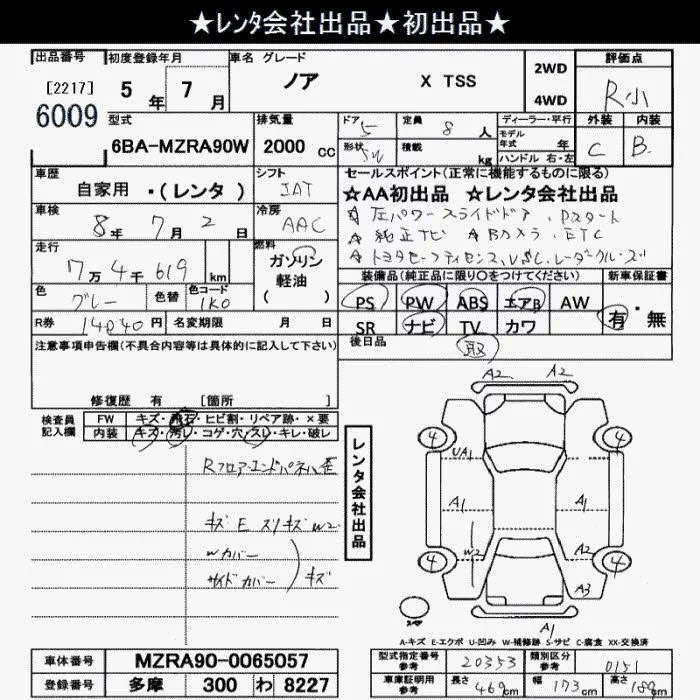 ★レンタ会社出品★初出品★
出品番号 初度登録年月 車名 グレード 評価点
[2217] 5年 7月 ノア X TSS 2WD 4WD R小
6009
型式 排気量 ドア 5 定員 8人 ディーラー・平行 外装 内装
6BA-MZRA90W 2000cc 形状 5W 積載 kg モデル年式 年 ハンドル 右・左 C B
車歴 シフト セールスポイント(正常に機能するものに限る)
自家用 ・(レンタ) IAT ☆AA初出品 ☆レンタ会社出品
車検 冷房 ☆左パワースライドドア、Pスタート
8年 7月 2日 AAC ☆純正ナビ ☆Bカメラ、ETC
走行 燃料 ☆トヨタセーフティセンス、VSC、レーダクルーズ
7万4千619km ガソリン 軽油 ( )
装備品(純正品に限り○をつけてください) 新車保証書
色 グレー 色替 色コード 1K0 PS PW ABS エアB AW 有・無
R券 14040円 名変期限 月 日 SR ナビ TV カワ
注意事項申告欄(不具合内容等は具体的に記入して下さい) 後日品 取
修復歴 有 [箇所 ]
検査員記入欄 FW キズ・飛石・ヒビ割・リペア跡・×要
内装 キズ・汚レ・コゲ・穴・スレ・キレ・破レ
Rフロア・エンドパネル歪
キズ E スリキズ W2
Wカバー
サイドカバー ) キズ
レンタ会社出品
A2 A2
4 4
UA1
A1 A1
W2 A2
4 4
A3
A1
スペヤ
A-キズ E-エクボ U-凹み W-補修跡 S-サビ C-腐食 XX-交換済
車体番号 MZRA90-0065057 型式指定番号 参考 20353 類別区分 参考 0151
登録番号 多摩 300 わ 8227 車庫証明用 参考 長さ 469cm 幅 173cm 高さ 189cm